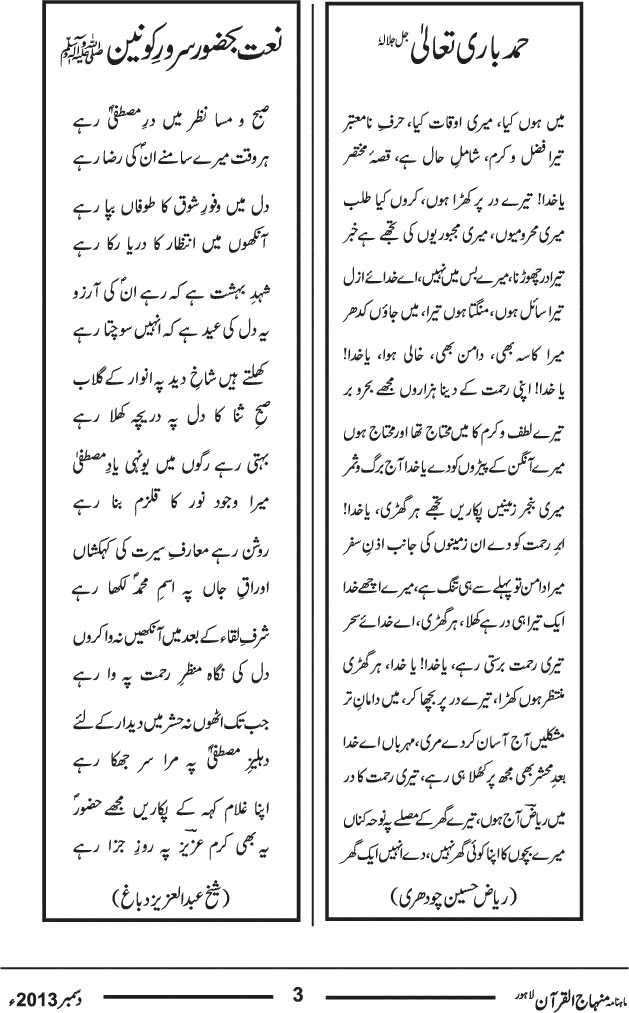 حمد باری تعالیٰ جل جلالہٗ
میں ہوں کیا، میری اوقات کیا، حرفِ نامعتبر
تیرا فضل و کرم، شاملِ حال ہے، قصۂ مختصر
یاخدا! تیرے در پر کھڑا ہوں، کروں کیا طلب
میری محرومیوں، میری مجبوریوں کی تجھے ہے خبر
تیرا در چھوڑنا، میرے بس میں نہیں، اے خدائے ازل
تیرا سائل ہوں، منگتا ہوں تیرا، میں جاؤں کدھر
میرا کاسہ بھی، دامن بھی، خالی ہوا، یاخدا!
یا خدا! اپنی رحمت کے دینا ہزاروں مجھے بحر و بر
تیرے لطف و کرم کا میں محتاج تھا اور محتاج ہوں
میرے آنگن کے پیڑوں کو دے یاخدا آج برگ و ثمر
میری بنجر زمینیں پکاریں تجھے ہر گھڑی، یاخدا!
ابرِ رحمت کو دے ان زمینوں کی جانب اذنِ سفر
میرا دامن تو پہلے سے ہی تنگ ہے، میرے اچھے خدا
ایک تیرا ہی در ہے کھلا، ہر گھڑی، اے خدائے سحر
تیری رحمت برستی رہے، یاخدا! یا خدا، ہر گھڑی
منتظر ہوں کھڑا، تیرے در پر بچھا کر، میں دامانِ تر
مشکلیں آج آسان کردے مری، مہرباں اے خدا
بعدِ محشر بھی مجھ پر کھلا ہی رہے، تیری رحمت کا در
میں ریاضؔ آج ہوں، تیرے گھر کے مصلے پہ نوحہ کناں
میرے بچوں کا اپنا کوئی گھر نہیں، دے انہیں ایک گھر
(ریاض حسین چودھری)
نعت بحضور سرورِ کونین ﷺ
صبح و مسا نظر میں درِ مصطفیؐ رہے
ہر وقت میرے سامنے انؐ کی رضا رہے
دل میں وفورِ شوق کا طوفاں بپا رہے
آنکھوں میں انتظار کا دریا رکا رہے
شہدِ بہشت ہے کہ رہے انؐ کی آرزو
یہ دل کی عید ہے کہ انہیں سوچتا رہے
کھلتے ہیں شاخِ دید پہ انوار کے گلاب
صبحِ ثنا کا دل پہ دریچہ کھلا رہے
بہتی رہے رگوں میں یونہی یادِ مصطفیٰ
میرا وجود نور کا قلزم بنا رہے
روشن رہے معارفِ سیرت کی کہکشاں
اوراقِ جاں پہ اسمِ محمدؐ لکھا رہے
شرفِ لقاء کے بعد میں آنکھیں نہ وا کروں
دل کی نگاہ منظرِ رحمت پہ وا رہے
جب تک اٹھوں نہ حشر میں دیدار کے لئے
دہلیزِ مصطفیؐ پہ مرا سر جھکا رہے
اپنا غلام کہہ کے پکاریں مجھے حضورؐ
یہ بھی کرم عزیزؔ پہ روزِ جزا رہے
(شیخ عبدالعزیز دباغ)
ماہنامہ منہاج القرآن لاہور
3
دسمبر 2013ء